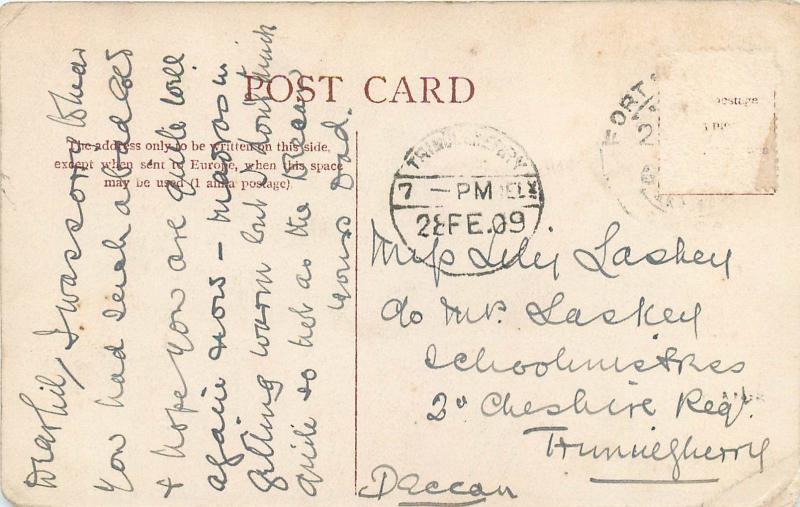 POST CARD
The address only to be written on this side,
except when sent to Europe, when this space
may be used (1 anna postage).
Dear Lily, I was sorry to hear
you had such a bad
& hope you are quite well
again now – Madras is
getting warm but I don't think
quite so hot as the Deccan
yours Dad.
postage
TRIMULGHERRY
7 - PM DELY
28 FE.09
FORT
Miss Lily Laskey
c/o Mrs Laskey
Schoolmistress
2d Cheshire Regt.
Trimulgherry
Deccan